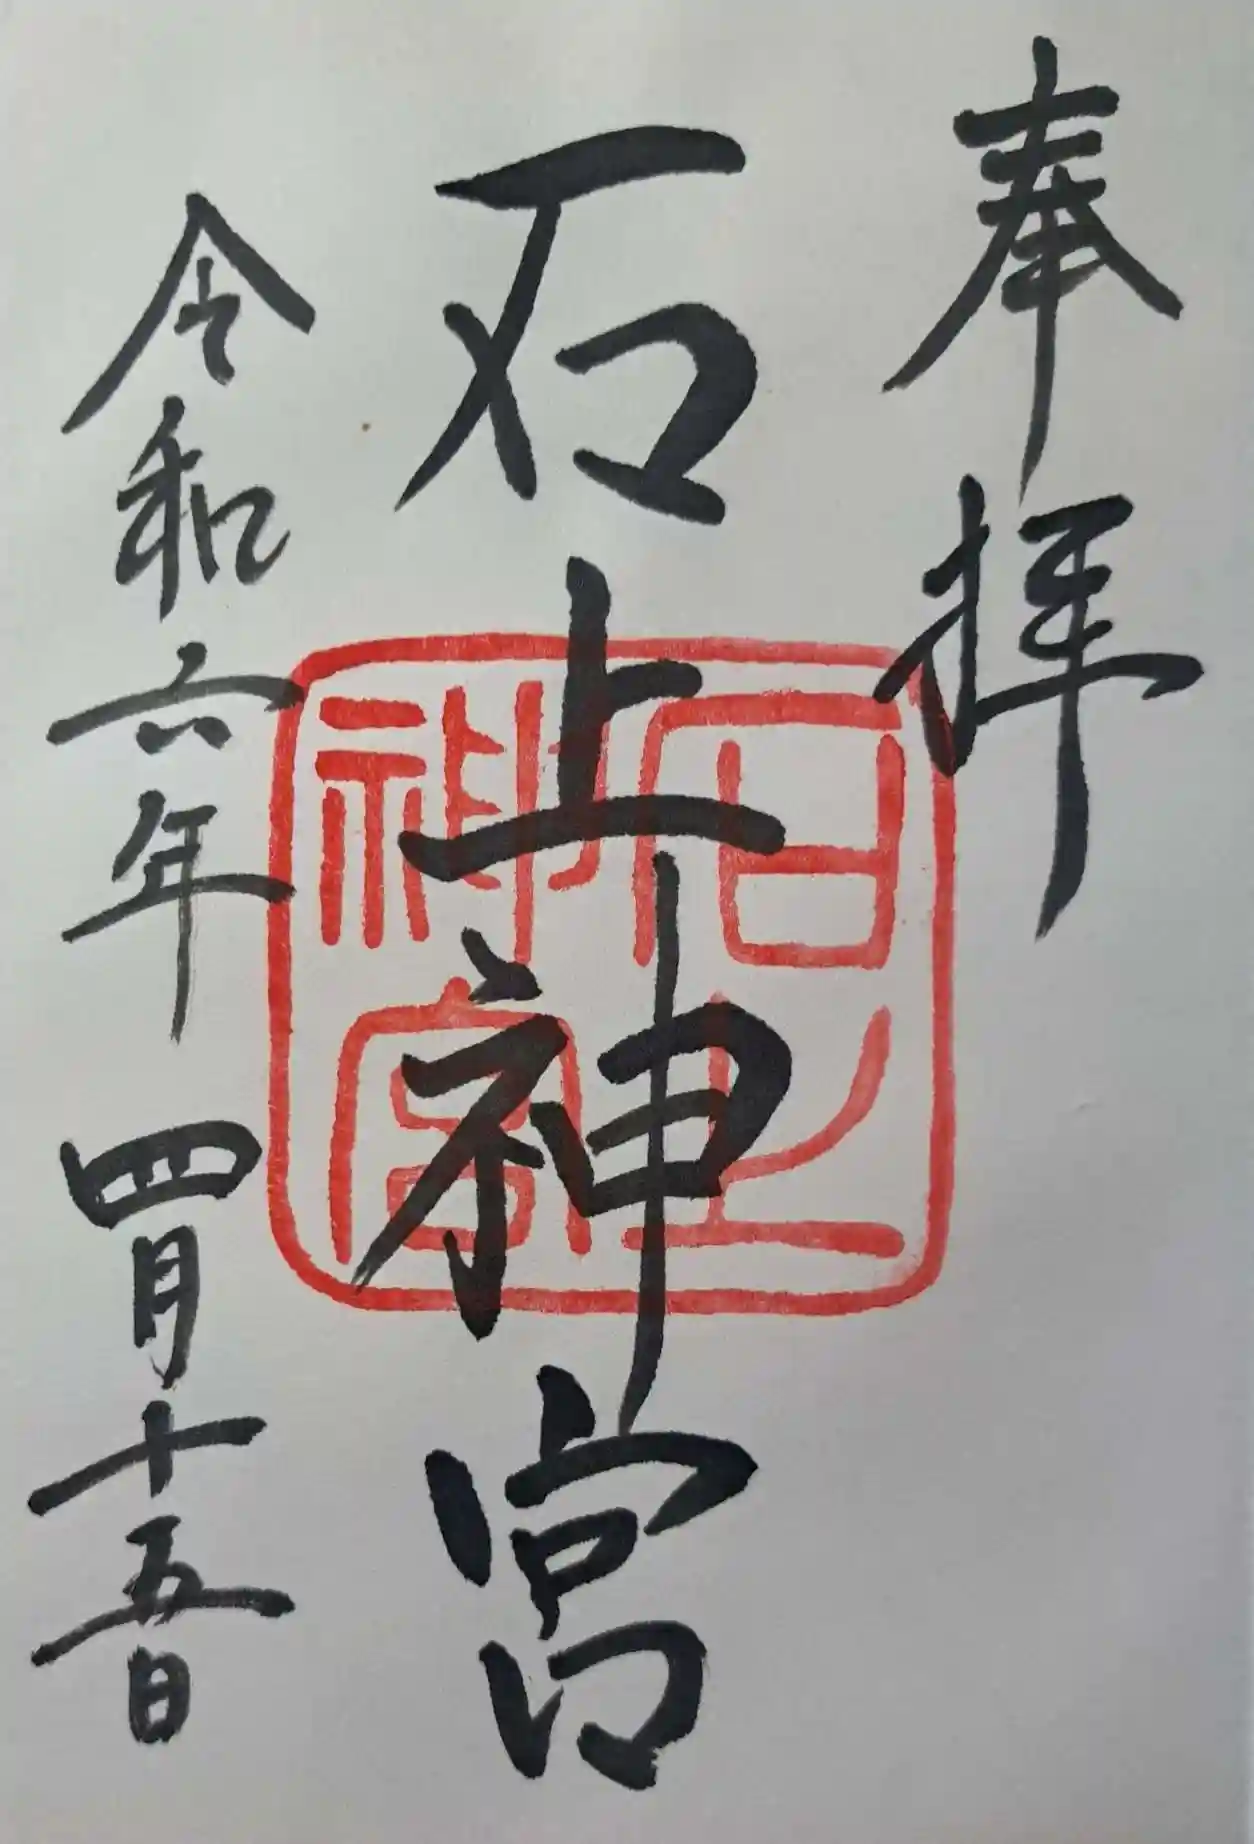 奉拝
石上神宮
石上神宮
令和六年四月十五日